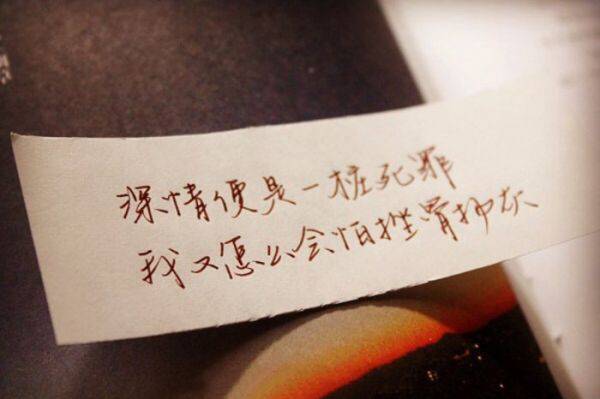 深情便是一桩死罪
我又怎么会怕挫骨扬灰